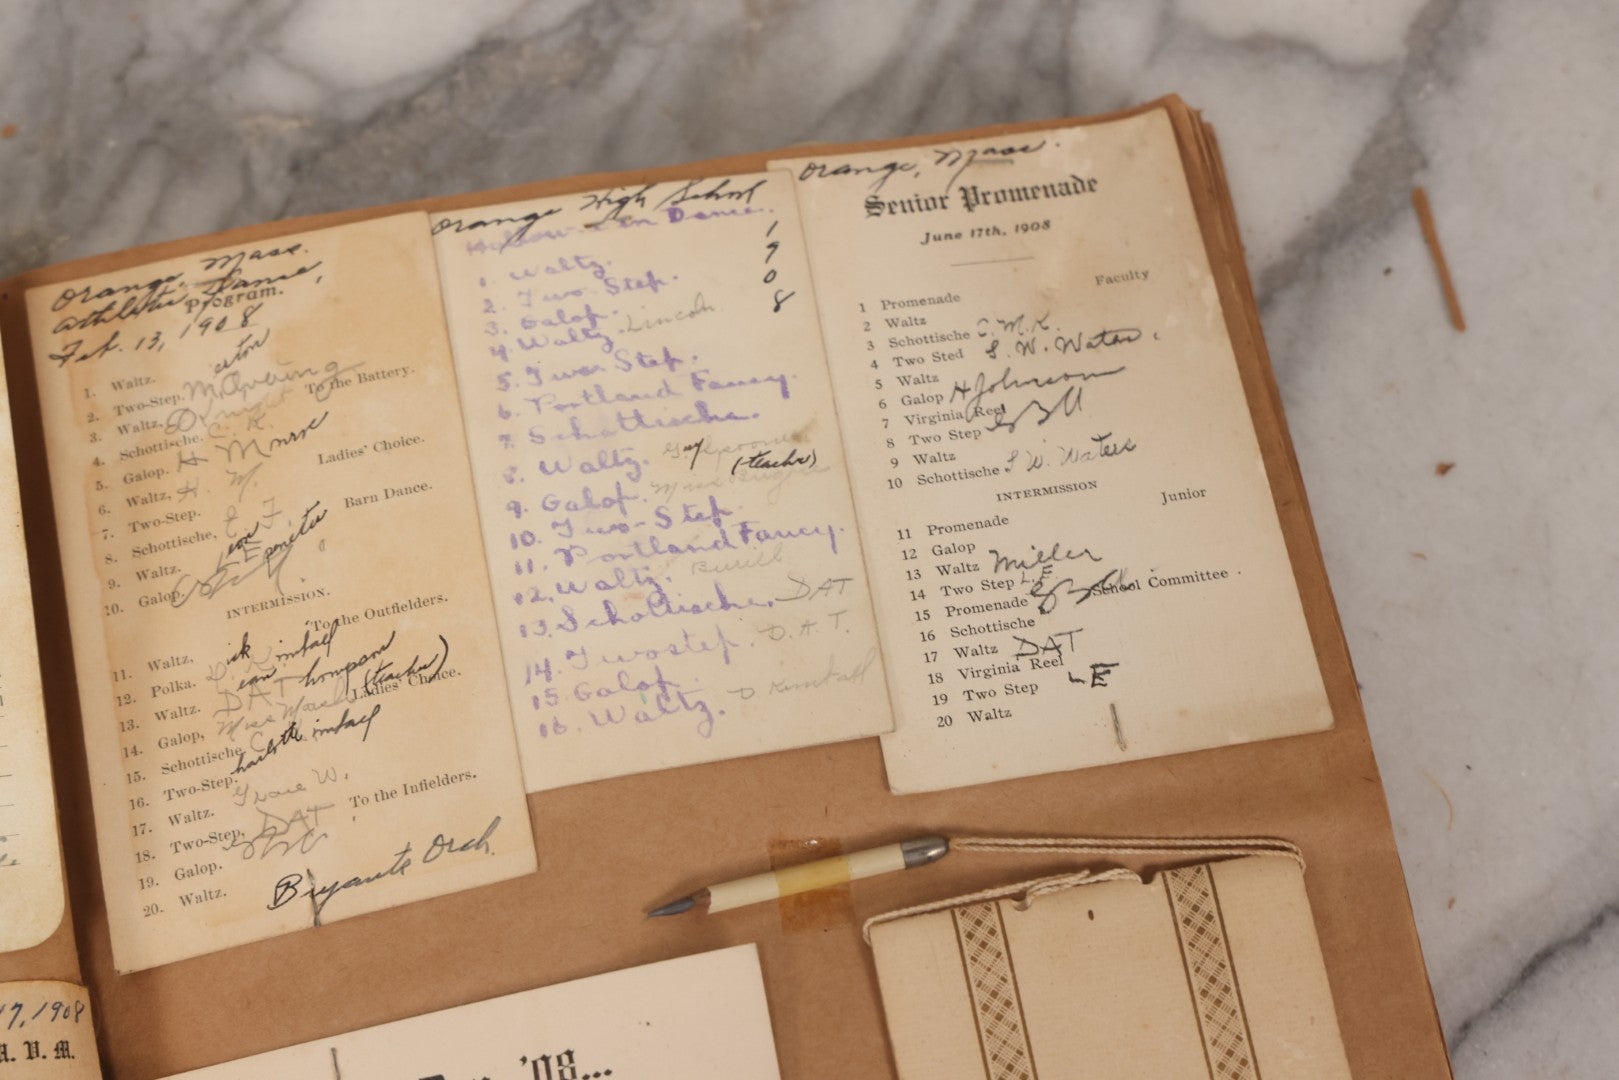 Orange, Mass.
Athletic Dance,
Program.
Feb. 13, 1908
1. Waltz.
2. Two-Step.
3. Waltz, To the Battery.
4. Schottische. C. K.
5. Galop. H Morse
6. Waltz, H. M. Ladies' Choice.
7. Two-Step.
8. Schottische, E. F. Barn Dance.
9. Waltz.
10. Galop.
INTERMISSION.
11. Waltz, To the Outfielders.
12. Polka. Dick Kimball
13. Waltz. DAT
14. Galop, Miss (teacher) Ladies' Choice.
15. Schottische
16. Two-Step.
17. Waltz. Grace W.
18. Two-Step, DAT To the Infielders.
19. Galop.
20. Waltz.
Bryants Orch.
Orange High School
Dance.
1
9
0
8
1. Waltz.
2. Two-Step.
3. Galop.
4. Waltz. Lincoln
5. Two-Step.
6. Portland Fancy.
7. Schottische.
8. Waltz. Guy Spooner
(teacher)
9. Galop. Miss
10. Two-Step.
11. Portland Fancy.
12. Waltz. Burill
13. Schottische. DAT
14. Twostep. D. A. T.
15. Galop.
16. Waltz. D Kimball
Orange, Mass.
Senior Promenade
June 17th, 1908
1 Promenade Faculty
2 Waltz
3 Schottische C. M. K.
4 Two Sted S. W. Waters.
5 Waltz
6 Galop H Johnson
7 Virginia Reel
8 Two Step
9 Waltz
10 Schottische S W. Waters
INTERMISSION
11 Promenade Junior
12 Galop
13 Waltz Miller
14 Two Step L. E
15 Promenade School Committee
16 Schottische
17 Waltz DAT
18 Virginia Reel
19 Two Step L E
20 Waltz
17, 1908
V. M.
'08...